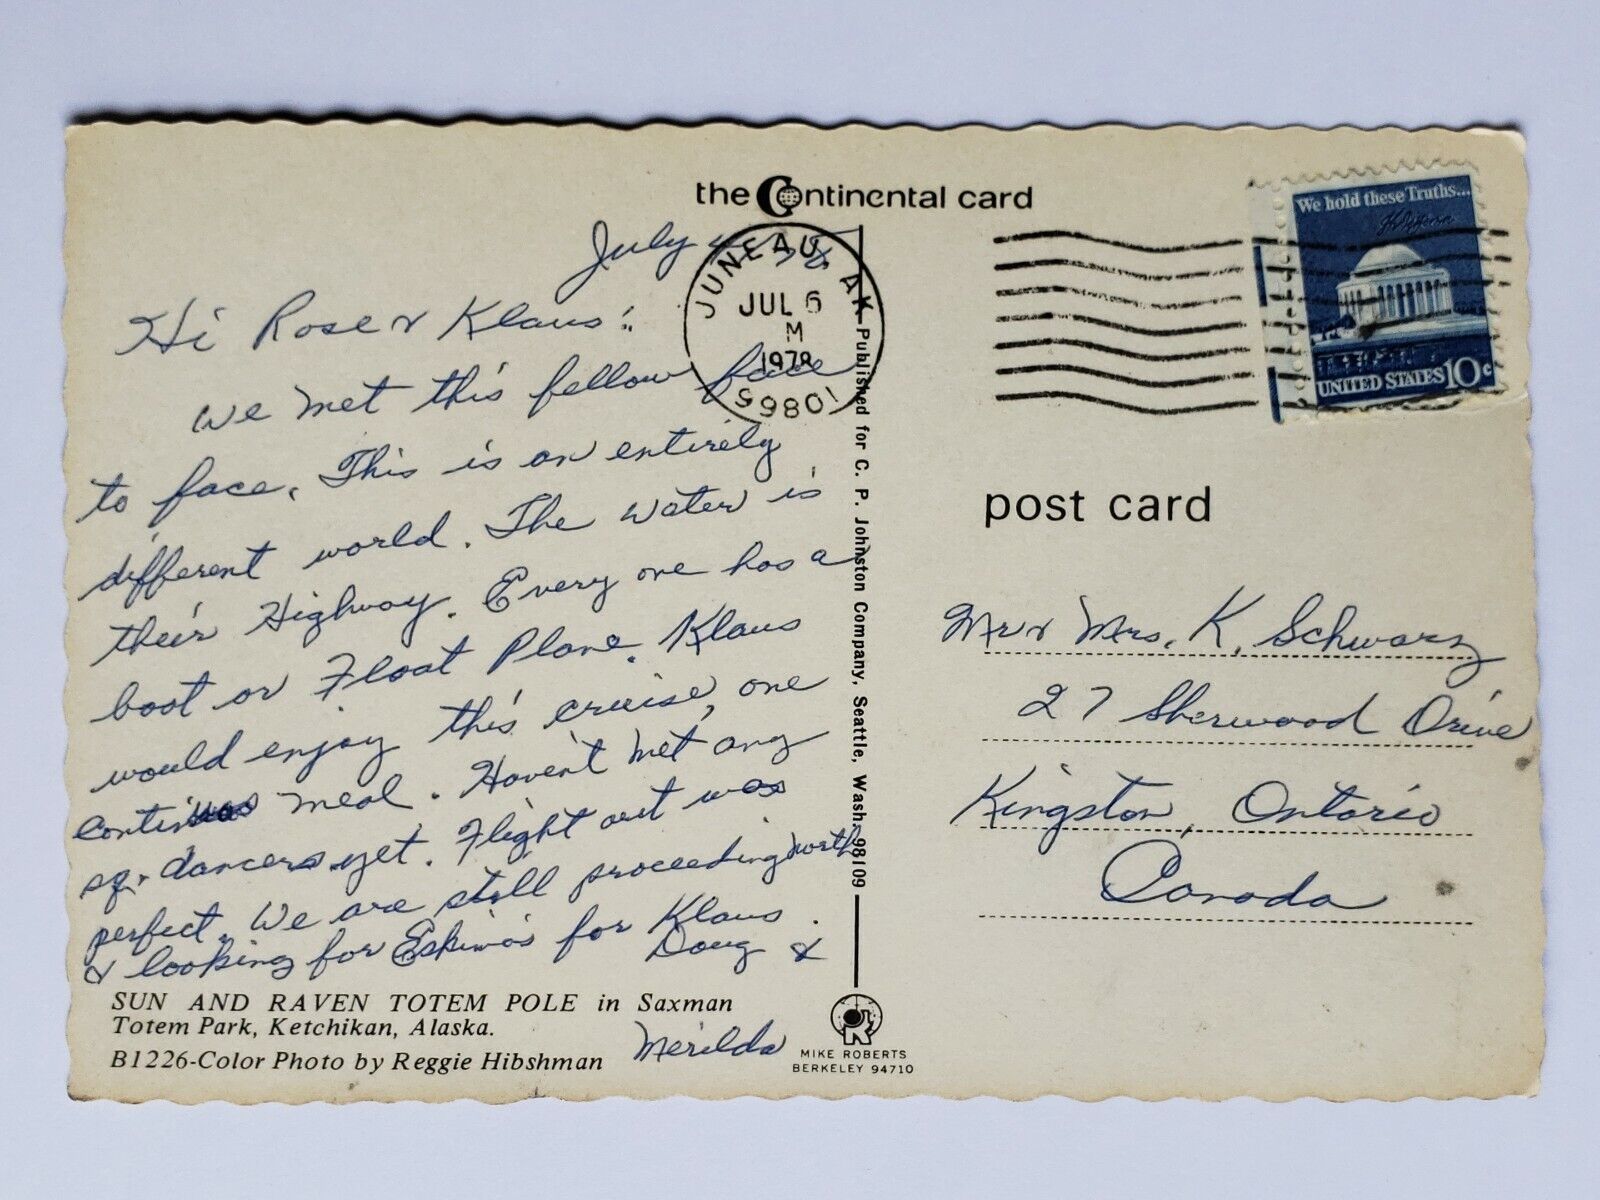 the Continental card
July 4
Hi Rose & Klaus:
We met this fellow face
to face. This is an entirely
different world. The water is
their Highway. Every one has a
boat or Float Plane. Klaus
would enjoy this cruise, one
continuos meal. Haven't met any
sq. dancers yet. Flight out was
perfect. We are still proceeding north
& looking for Eskimos for Klaus.
Doug &
Merilda
SUN AND RAVEN TOTEM POLE in Saxman
Totem Park, Ketchikan, Alaska.
B1226-Color Photo by Reggie Hibshman
JUNEAU, AK
JUL 6
M
99801
Published for C. P. Johnston Company, Seattle, Wash. 98109
MIKE ROBERTS
BERKELEY 94710
We hold these Truths...
UNITED STATES 10c
post card
Mr & Mrs. K. Schwarz
27 Sherwood Drive
Kingston, Ontario
Canada